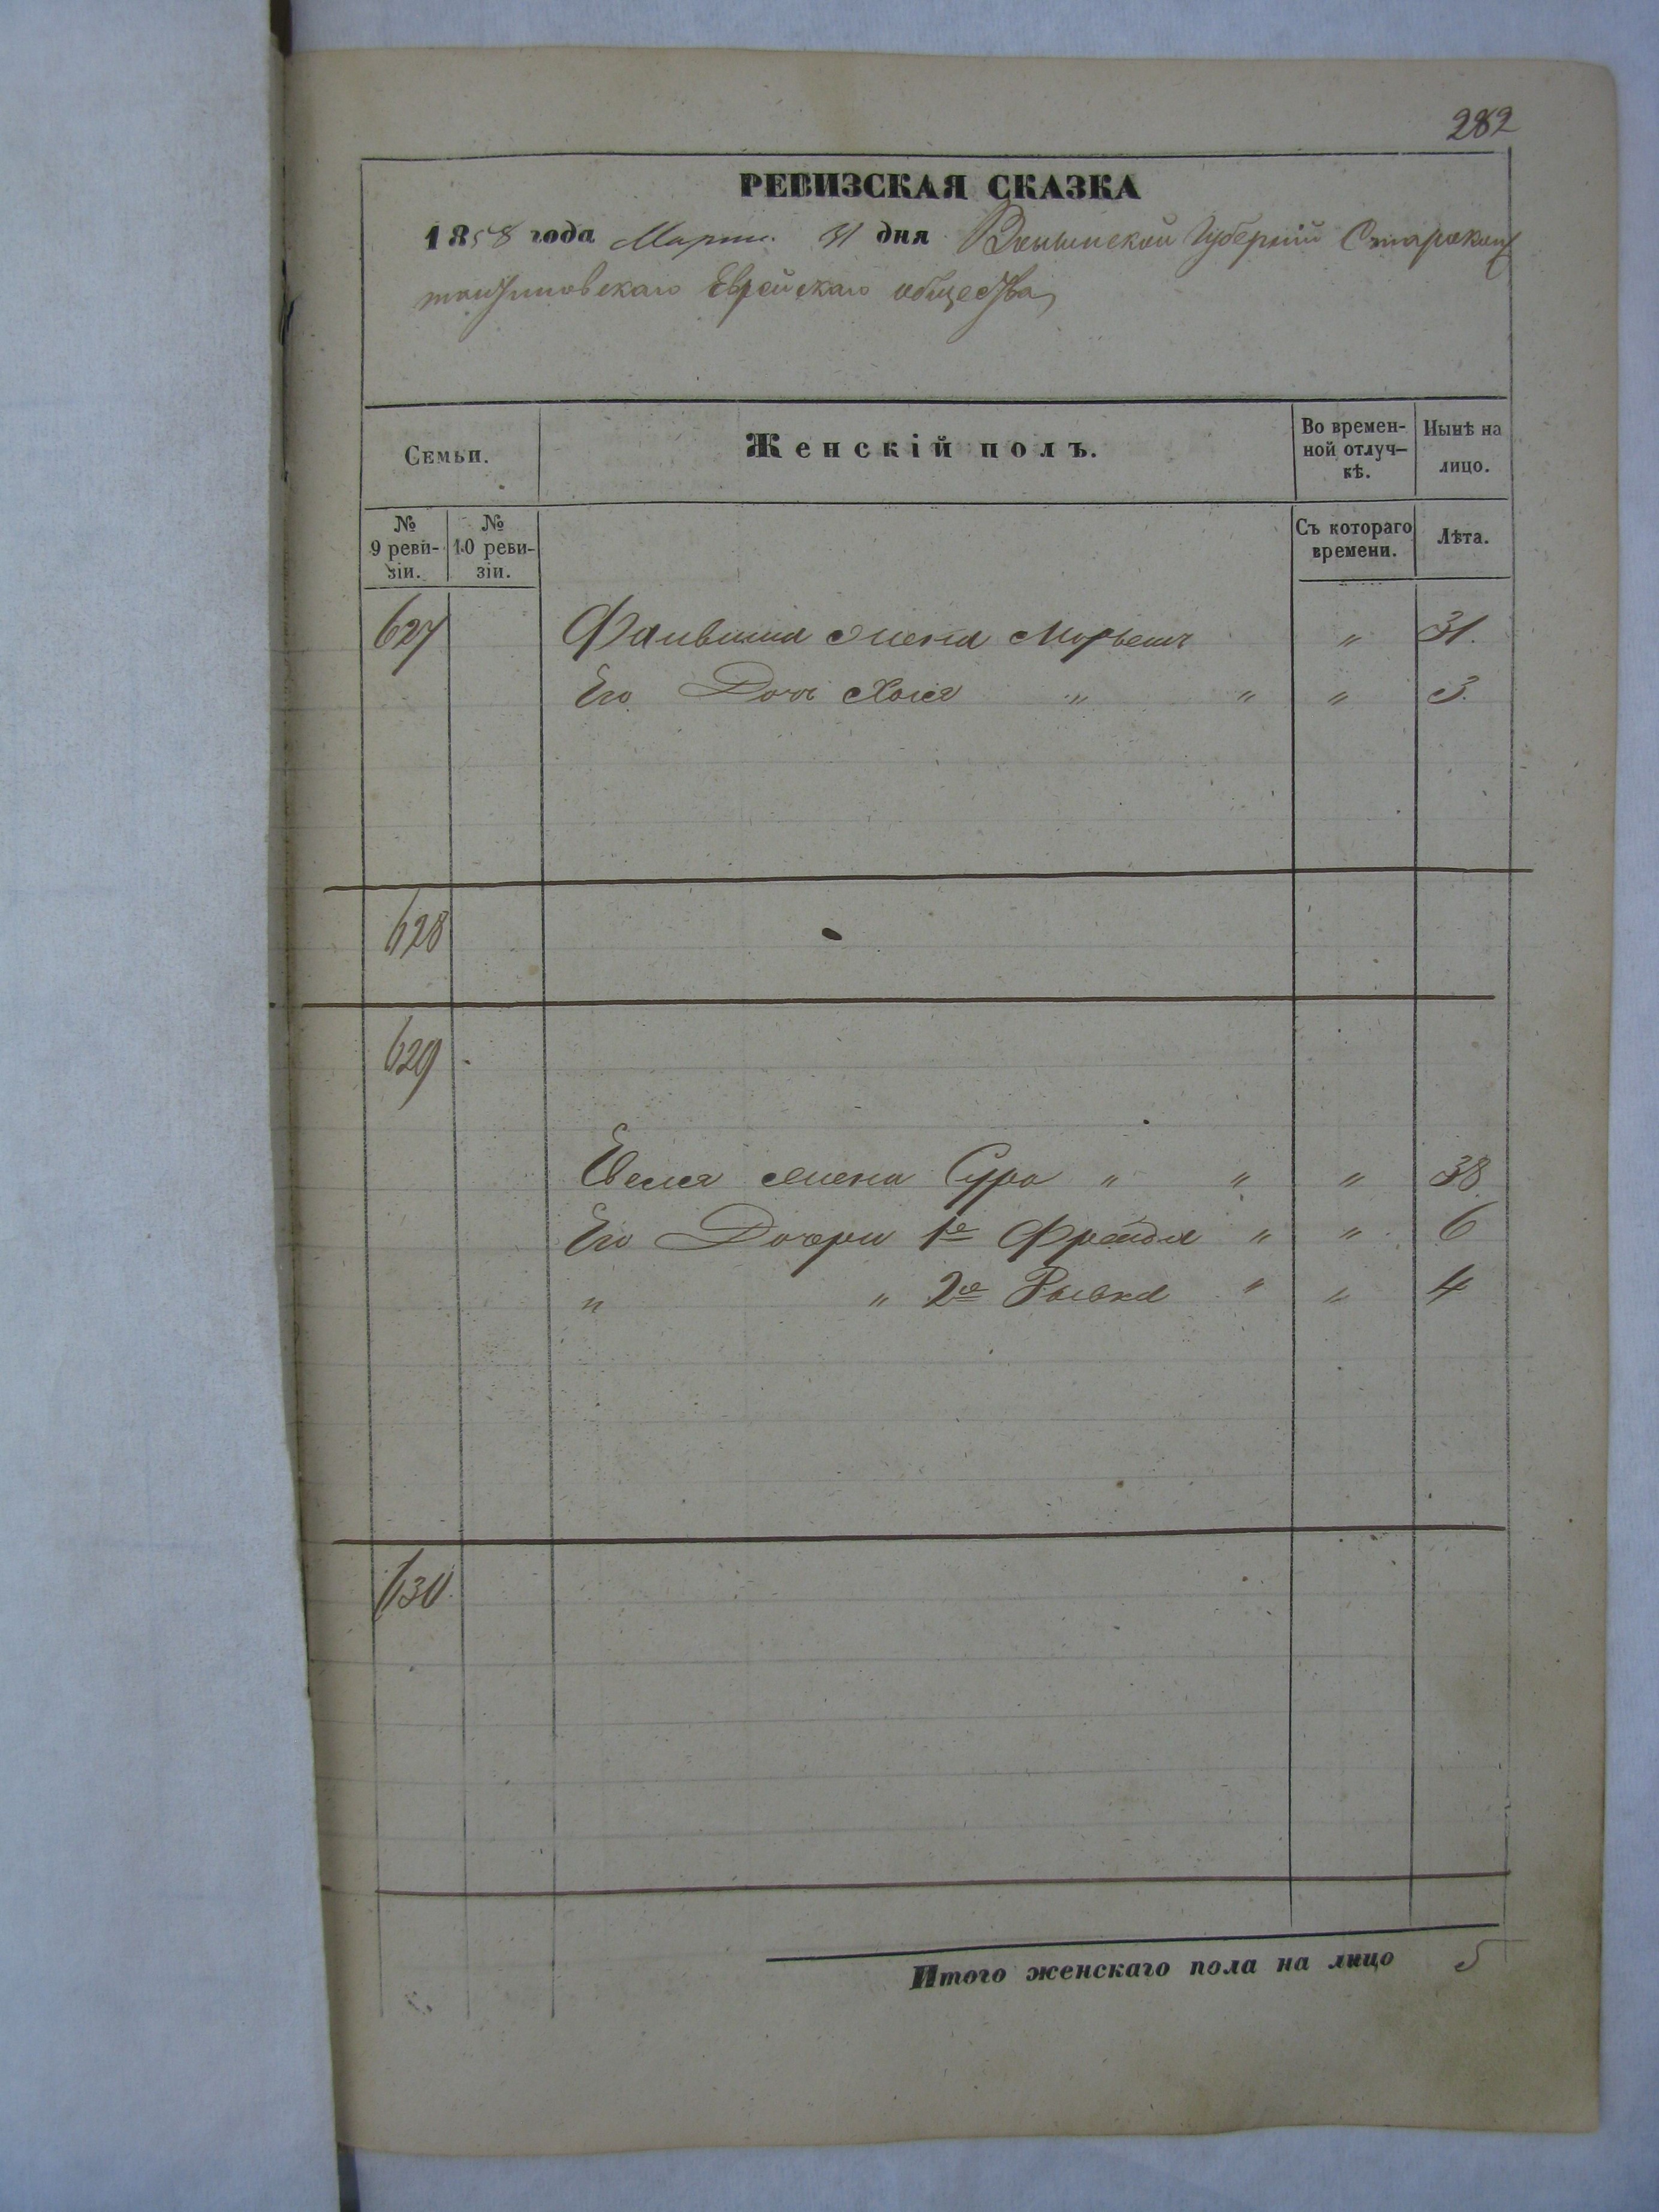 282
РЕВИЗСКАЯ СКАЗКА
1858 года Марта 31 дня Волынской Губерніи Старокон
тантиновскаго Еврейскаго общества
Семьи.
Женскій полъ.
Во времен-
ной отлуч-
кѣ.
Нынѣ на
лицо.
№
9 реви-
зіи.
№
10 реви-
зіи.
Съ котораго
времени.
Лѣта.
627 жена " 31.
Его Дочь Хая " " " 3.
628
629
жена Сура " " " 38.
Его Дочери 1я Фрейда " " 6
" " 2я Рывка " " 4
630.
Итого женскаго пола на лицо 5